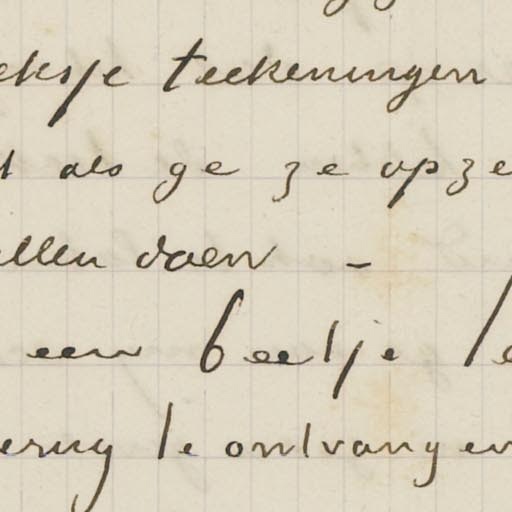 eksje teekeningen
t als ge ze opze
ellen doen –
een beetje te
erug te ontvangen